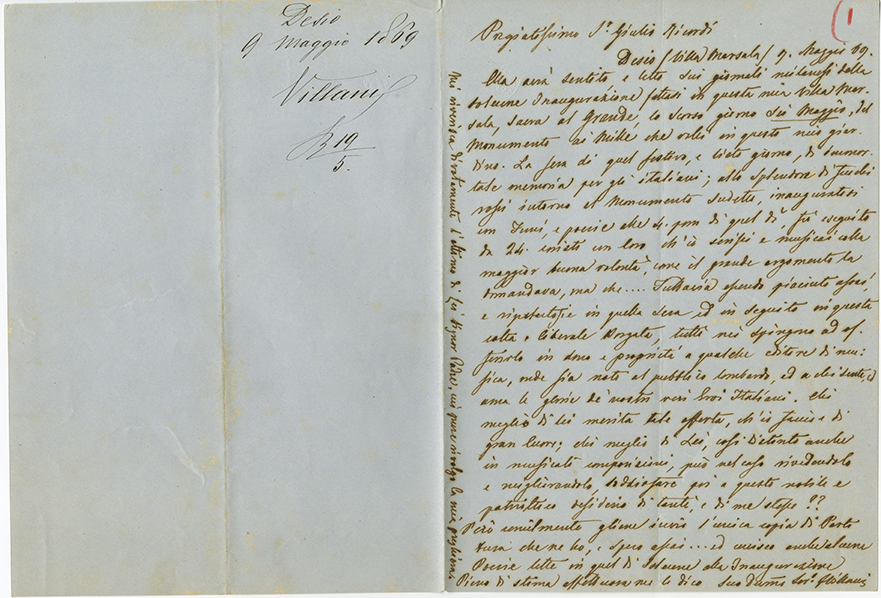 Desio
9 Maggio 1869
Villani
R 19/5.
1
Pregiatissimo Sr. Giulio Ricordi
Desio (Villa Marsala) 9. Maggio 69.
Ella avrà sentito e letto sui giornali milanesi della
solenne Inaugurazione fatasi in questa mia Villa Mar-
sala, sacra al Grande, lo scorso giorno sei Maggio, del
Monumento ai Mille che volli in questo mio giar-
dino. La sera di quel festivo, e lieto giorno, di immor-
tale memoria per gli italiani; allo splendore di fuochi
rossi intorno al Monumento sudetto, inauguratosi
con Inni, e poesie alle 4. pom di quel dì, fu eseguito
da 24. coristi un Coro ch'io scrissi e musicai colla
maggior buona volontà, come il grande argomento la
domandava, ma che.... Tuttavia essendo piaciuto assai,
e ripetutosi e in quella sera ed in seguito in questa
colta e liberale Borgata, tutti mi spingono ad of-
ferirlo in dono e proprietà a qualche editore di mu-
sica, onde sia noto al pubblico lombardo, ed a chi sente, ed
ama le glorie de' nostri veri Eroi Italiani. Chi
meglio di Lei merita tale offerta, ch'io faccio di
gran cuore; chi meglio di Lei, così distinto anche
in musicali composizioni, può nel caso rivedendolo
e migliorandolo, soddisfare poi a questo nobile e
patriottico desiderio di tanti, e di me stesso??
Però umilmente gliene invio l'unica copia di Parti
tura che ne ho, e spero assai... ed unisco anche alcune
Poesie lette in quel dì solenne alla Inaugurazione
Pieno di stima affettuosa me le dico Suo Dumo Servo Villani
Mi riverisca divotamente l'ottimo di Lei Signor Padre, cui pure rivolgo la mia preghiera